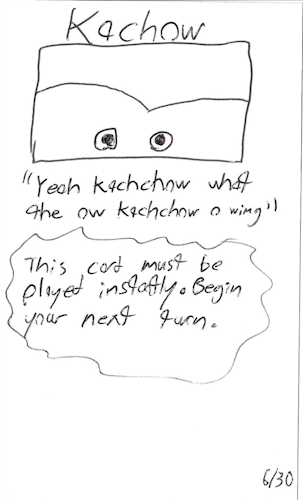 Kachow
"Yeah Kachchow what
the ow Kachchow o wing"
This card must be
played instantly. Begin
your next turn.
6/30